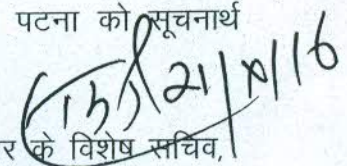 पटना को सूचनार्थ
21/x/16
र के विशेष सचिव,